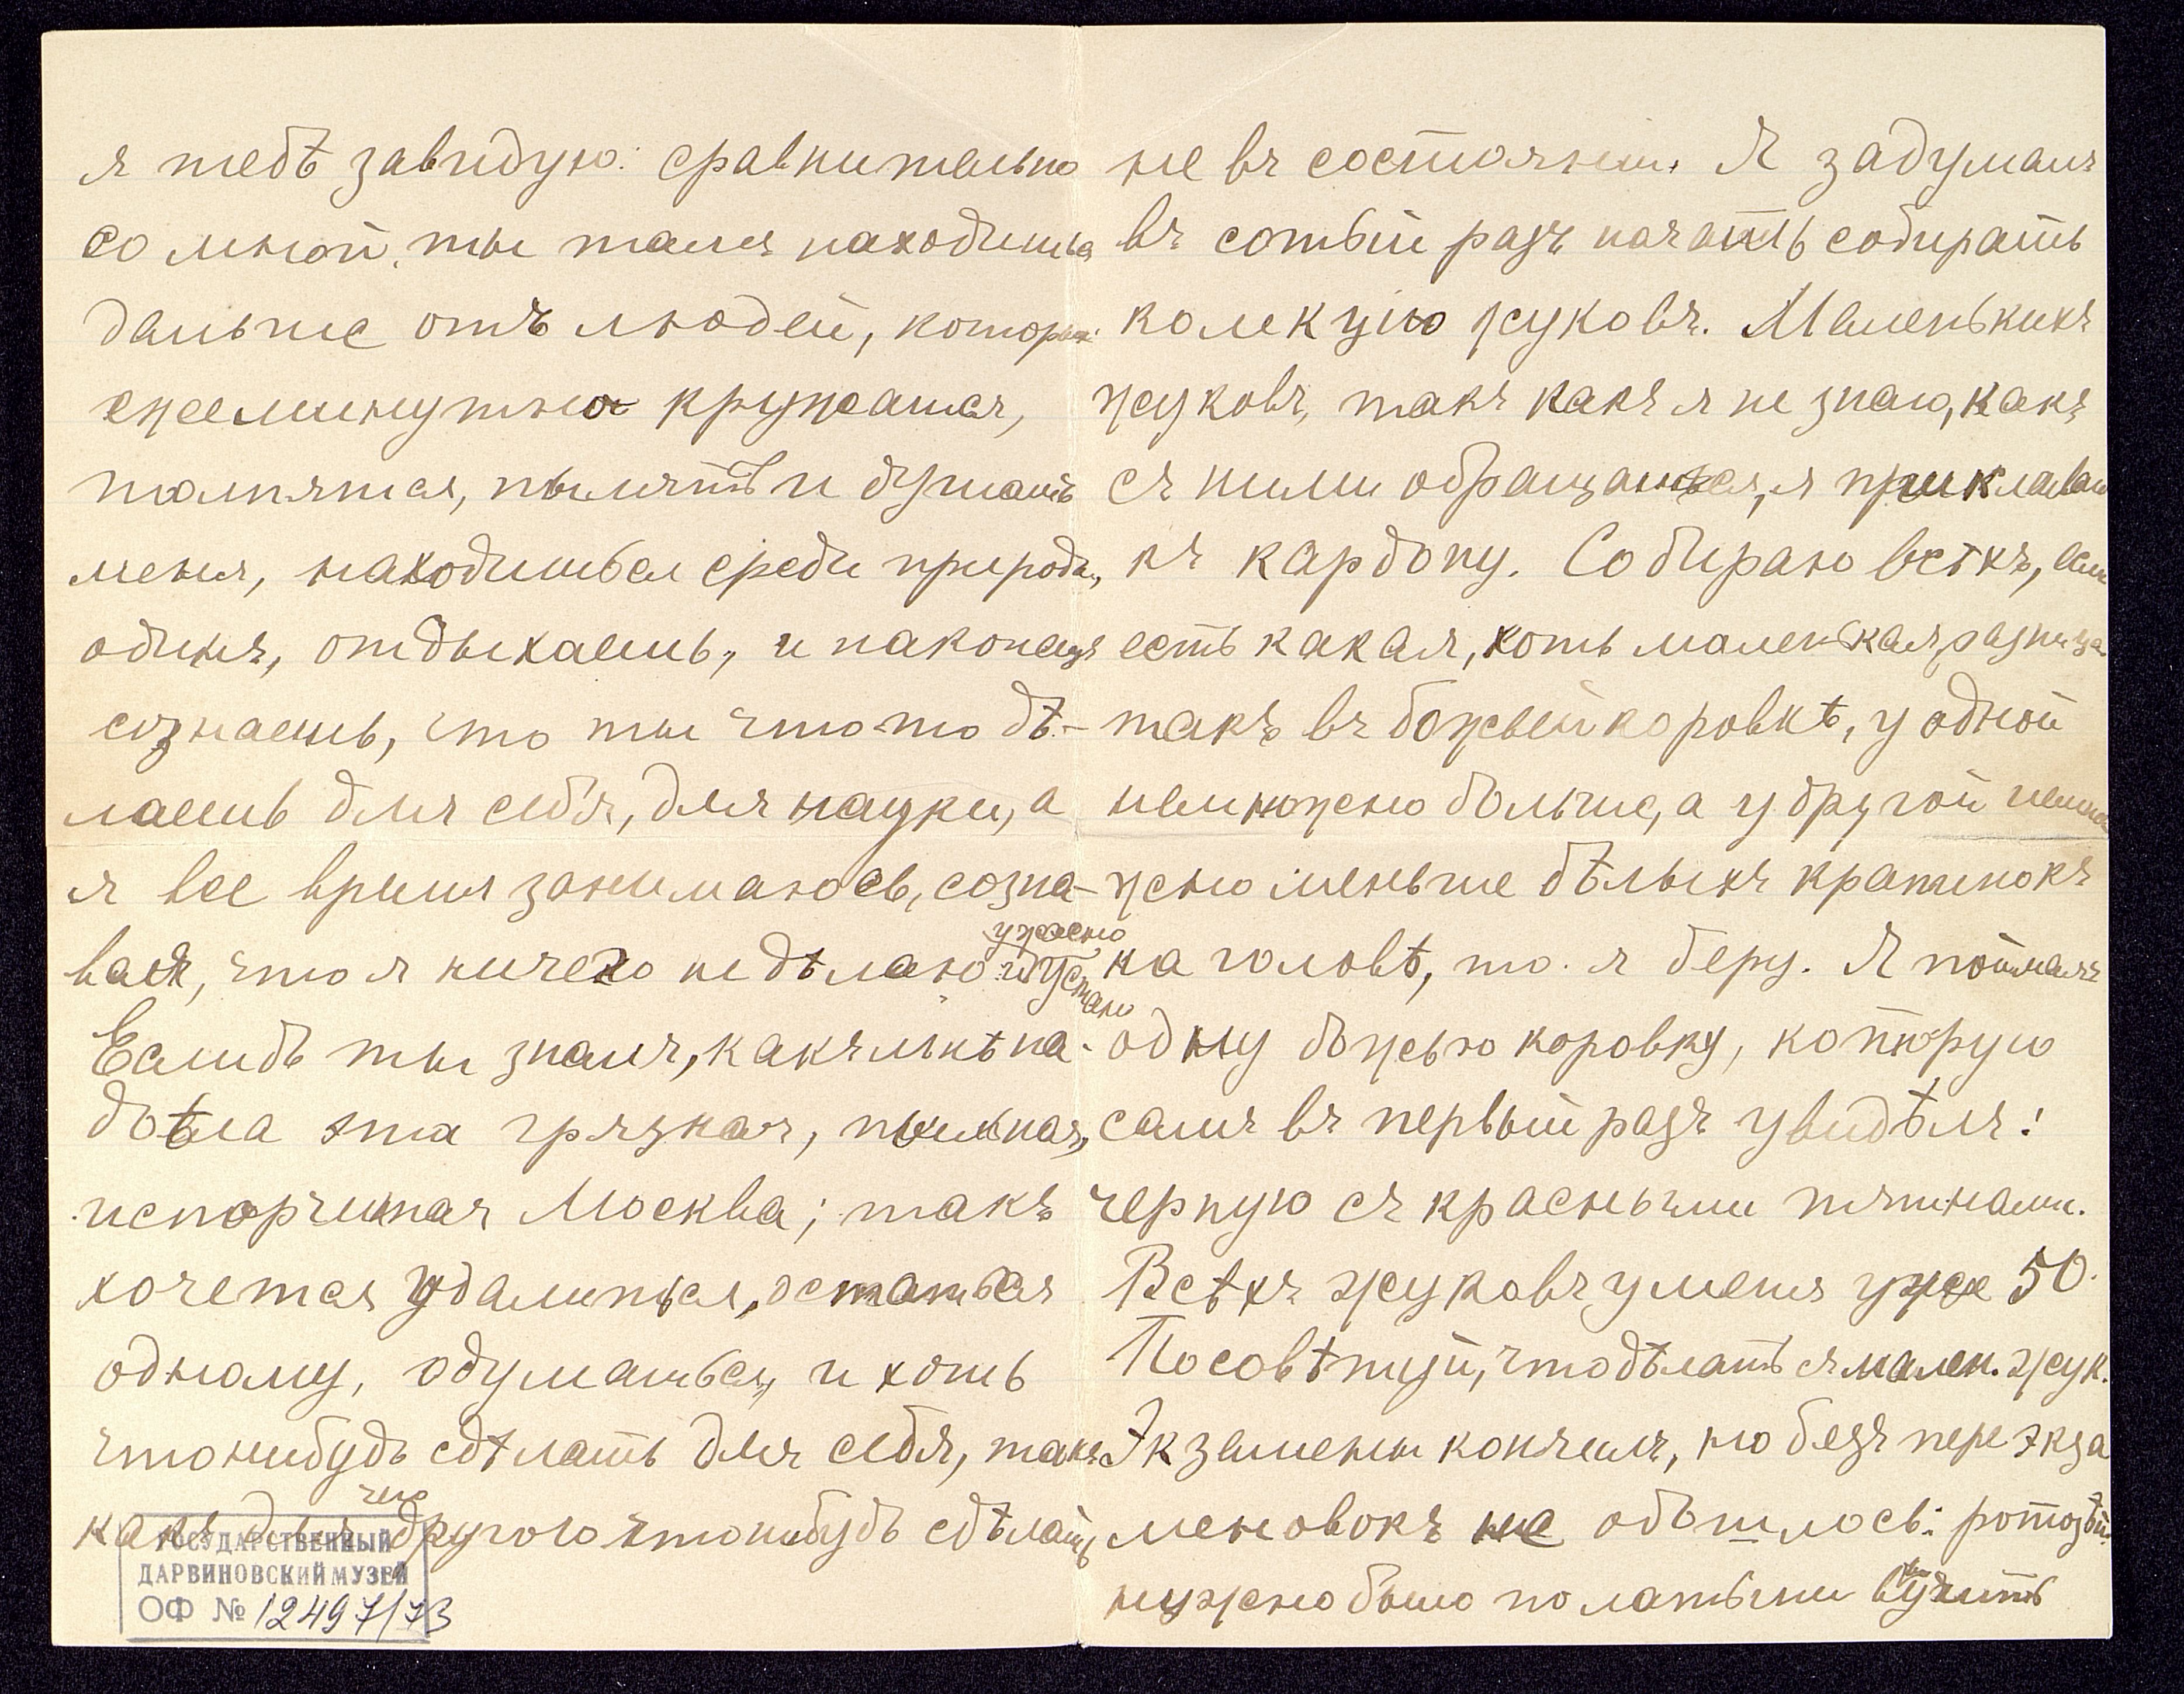 я тебѣ завидую: сравнительно
со мной, ты тамъ находишься
дальше отъ людей, которые
ежеминутно кружатся,
толпятся, пылятъ и душатъ
меня, находишься среди природы,
одинъ, отдыхаешь, и наконецъ
сознаешь, что ты что-то дѣ-
лаешь для себя, для науки, а
я все время занимаюсь, созна-
вая, что я ничего не дѣлаю и ужасно
устаю
Еслибъ ты зналъ, какъ мнѣ на-
доѣла эта грязная, пыльная,
испорченная Москва; такъ
хочется удалиться, остаться
одному, одуматься, и хоть
что нибудь сдѣлать для себя, такъ
чего
какъ для другого что нибудь сдѣлать
ГОСУДАРСТВЕННЫЙ
ДАРВИНОВСКИЙ МУЗЕЙ
ОФ № 12497/73
не въ состоянiи. Я задумалъ
въ сотый разъ начать собирать
колекцiю жуковъ. Маленькихъ
жуковъ, такъ какъ я не знаю, какъ
съ ними обращаются, я приклеиваю
къ кардону. Собираю всѣхъ, если
есть какая, хоть маленькая, разница
такъ въ божьей коровкѣ, у одной
немножно больше, а у другой немно
жно меньше бѣлыхъ крапинокъ
на головѣ, то я беру. Я поймалъ
одну божью коровку, которую
самъ въ первый разъ увидѣлъ:
черную съ красными пятнами.
Всѣхъ жуковъ у меня уже 50.
Посовѣтуй, что дѣлать съ мален. жук.
Экзамены кончилъ, но безъ пере экза
меновокъ не обошлось: ротозѣй
нужно было по латыни выучить